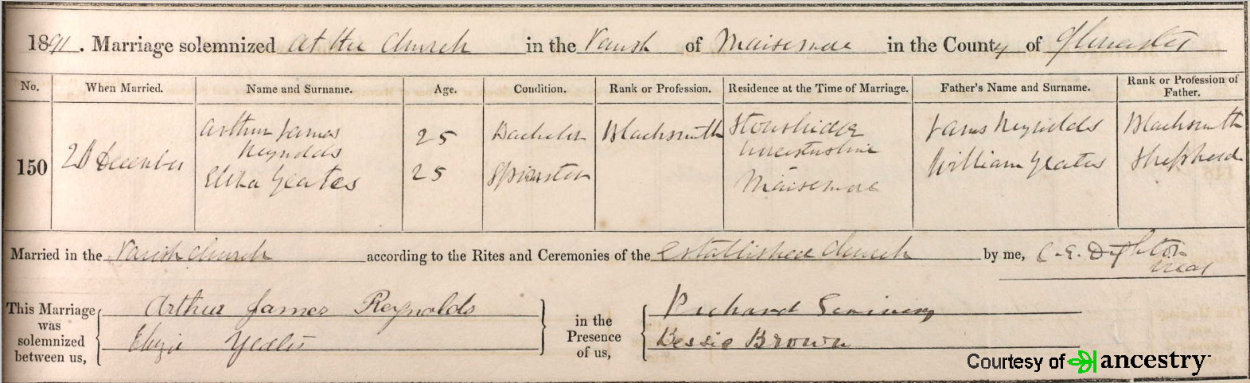 1891. Marriage solemnized at the Church in the Parish of Maisemore in the County of Gloucester
No. When Married. Name and Surname. Age. Condition. Rank or Profession. Residence at the Time of Marriage. Father's Name and Surname. Rank or Profession of Father.
150 December Arthur James Reynolds 25 Bachelor Blacksmith Stourbridge Worcestershire James Reynolds Blacksmith
Eliza Yeates 25 Spinster Maisemore William Yeates Shepherd
Married in the Parish Church according to the Rites and Ceremonies of the Established Church by me, C. E. Dighton
This Marriage was solemnized between us, Arthur James Reynolds in the Presence of us, Richard
Yeates Bessie Brown
Courtesy of ancestry